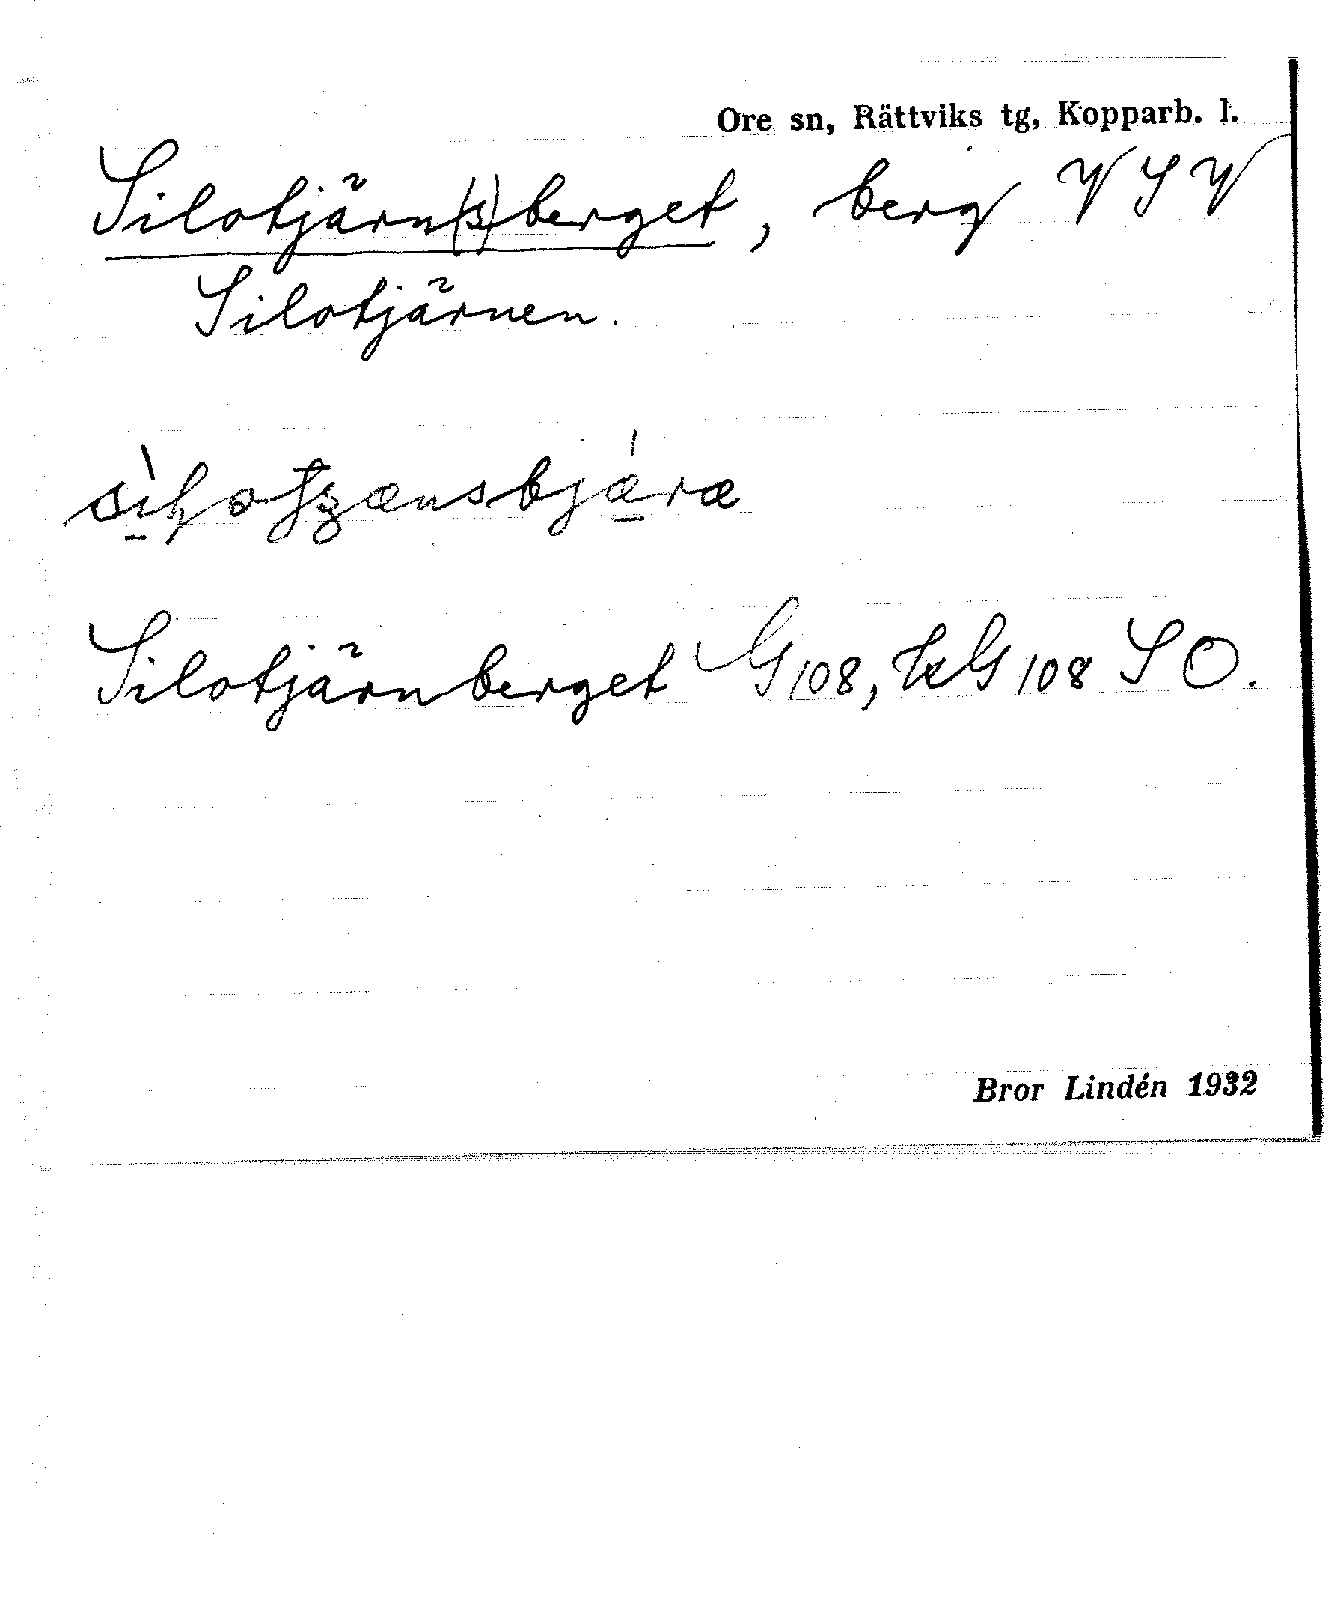 Ore sn, Rättviks tg, Kopparb. l.
Silotjärn(s)berget, berg V S V
Silotjärnen.
Silotjärnberget G 108, Hk G 108 S O.
Bror Lindén 1932